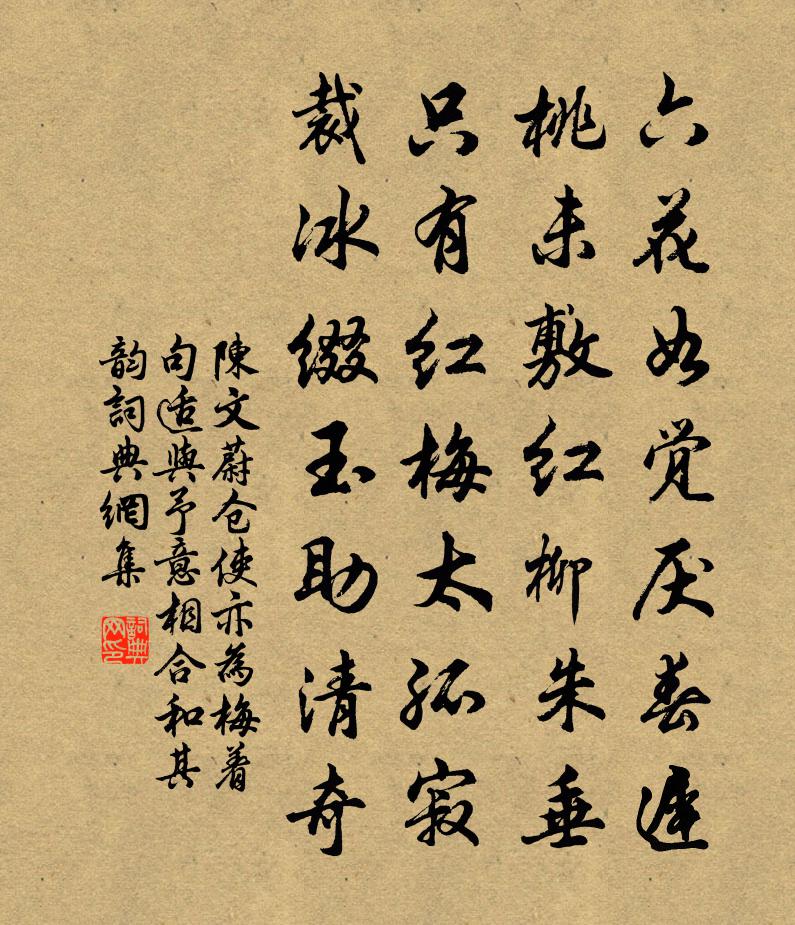 六花如觉厌春迟
桃未敷红柳朱垂
只有红梅太孤寂
裁冰缀玉助清奇
陳文蔚仓使亦為梅着
句适與予意相合和其
韵詞典網集
詞典
网印